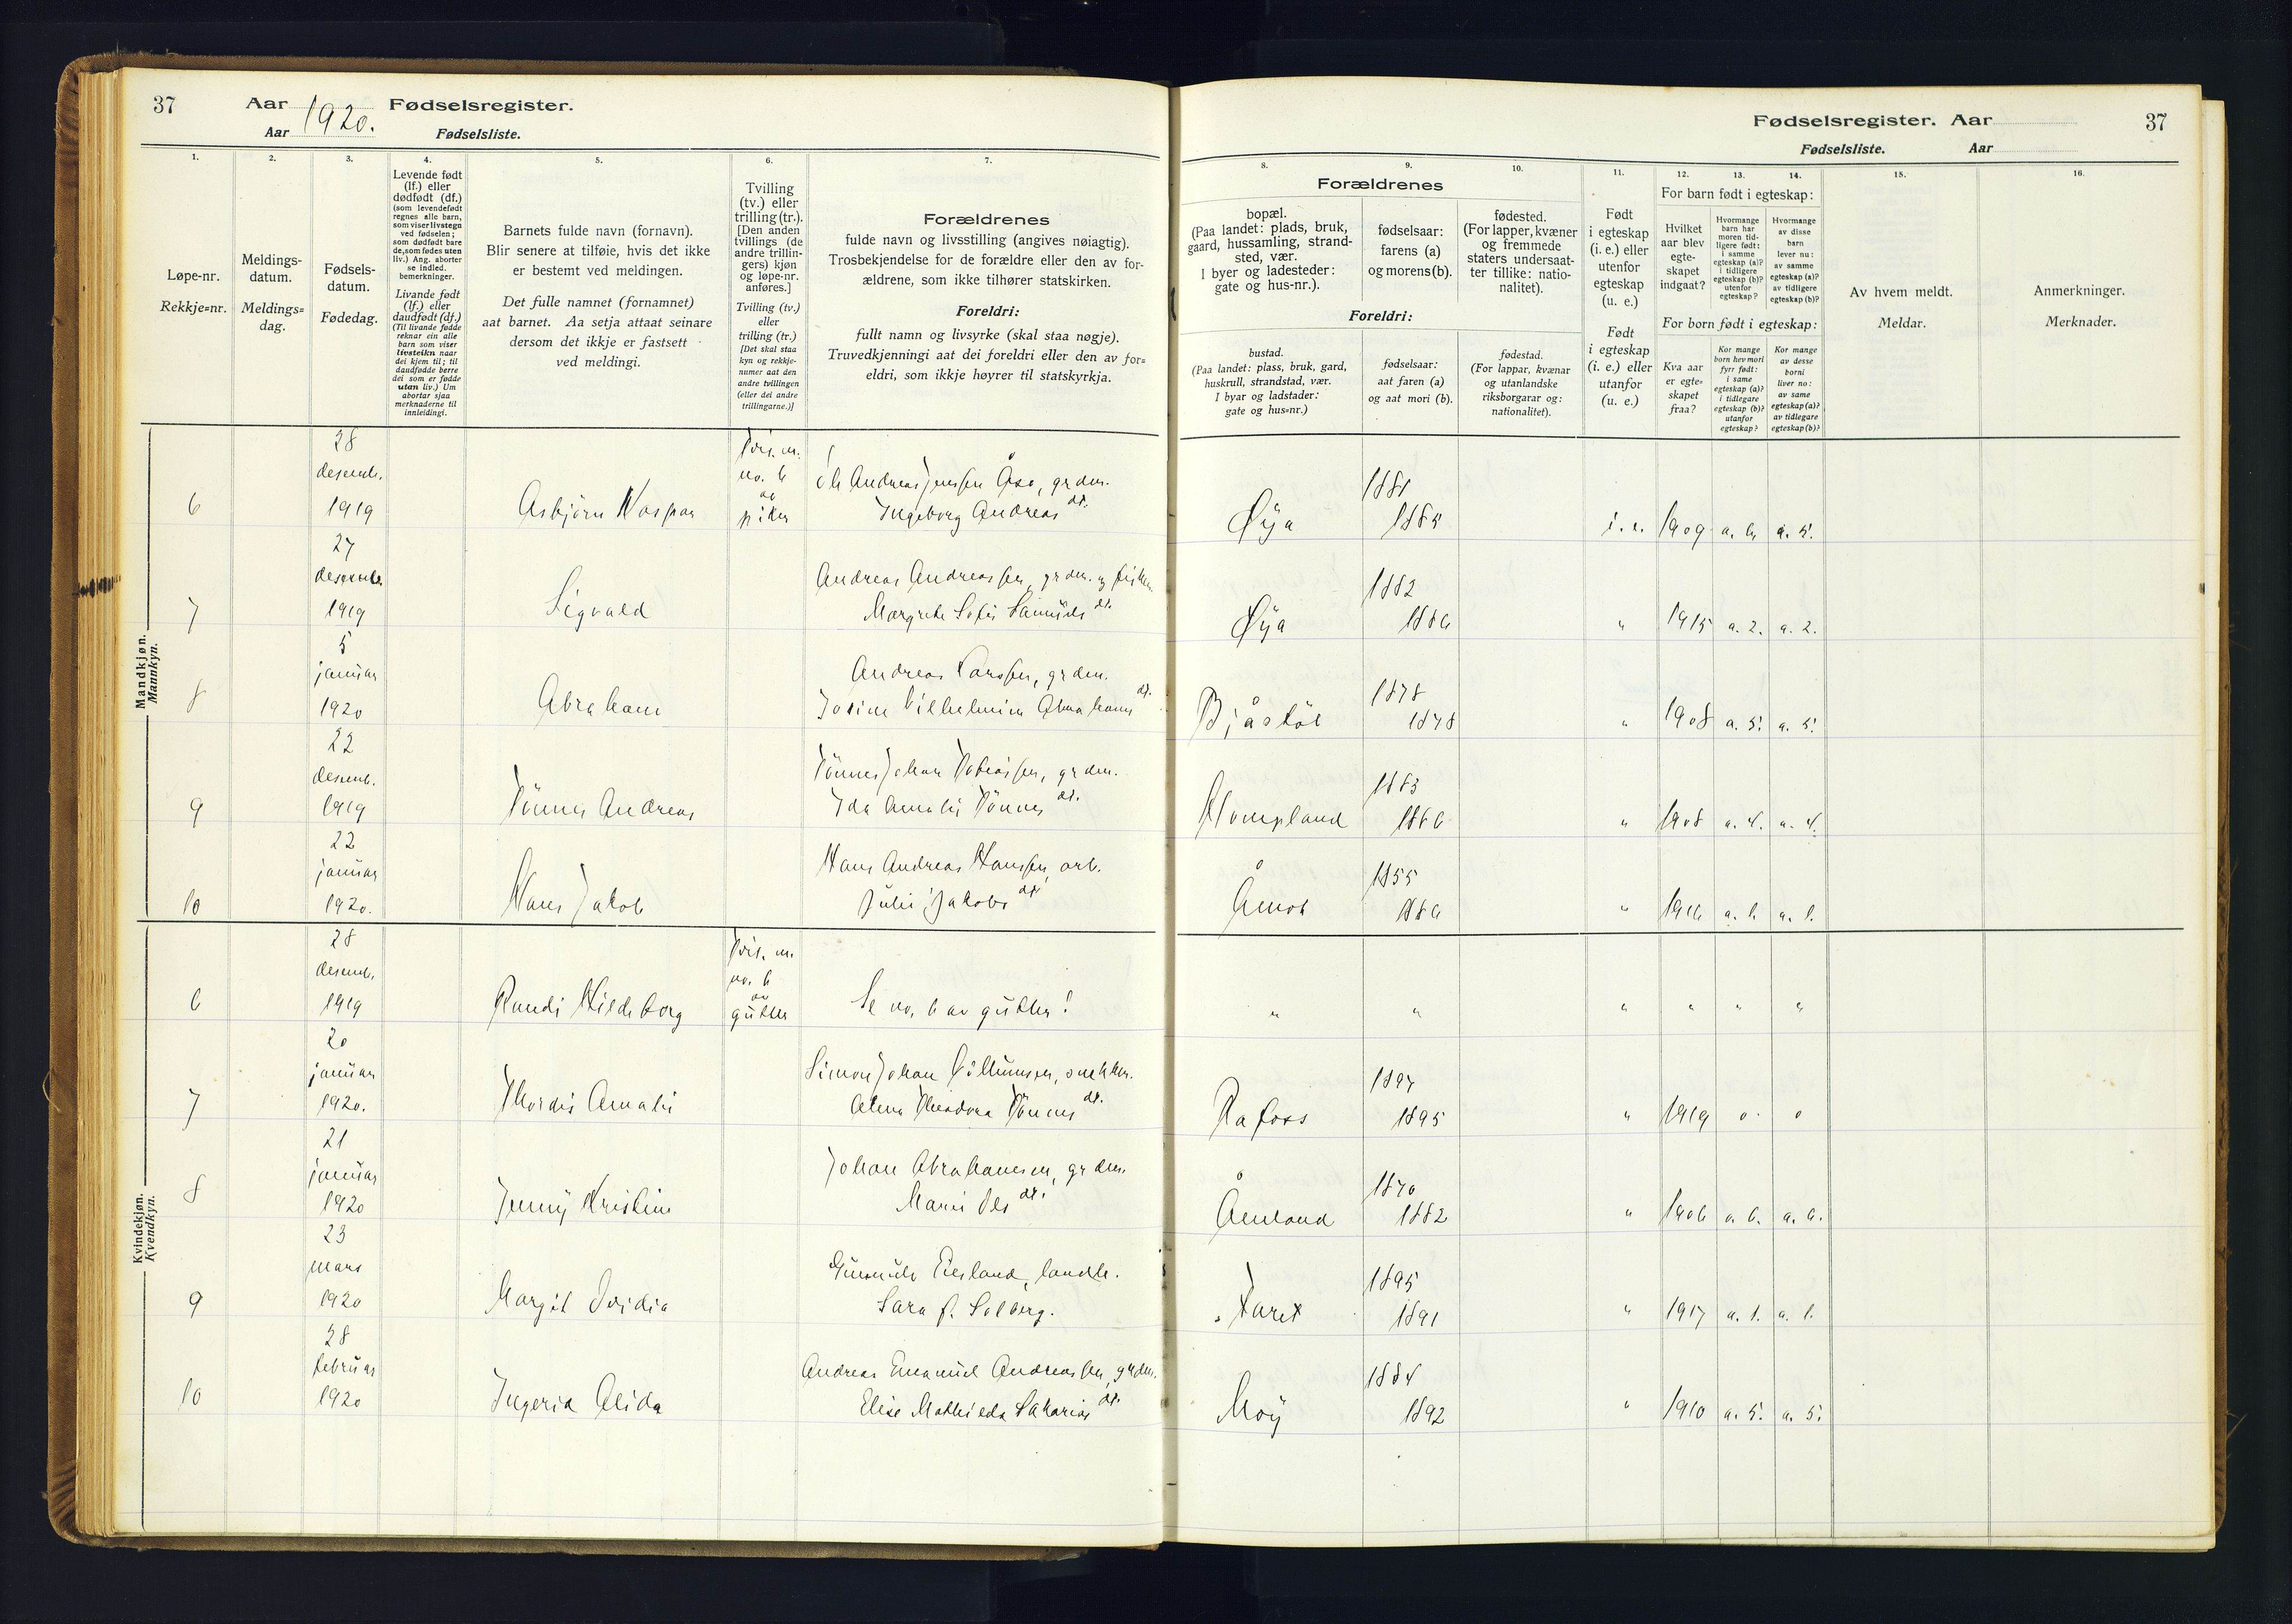 37 Aar 1920. Fødselsregister.
Aar Fødselsliste.
Fødselsregister. Aar 37
Fødselsliste. Aar
1. 2. 3. 4. 5. 6. 7. 8. 9. 10. 11. 12. 13. 14. 15. 16.
Løpe-nr.
Rekkje=nr.
Meldings-
datum.
Meldings=
dag.
Fødsels-
datum.
Fødedag.
Levende født
(lf.) eller
dødfødt (df.)
(som levendefødt
regnes alle barn,
som viser livstegn
ved fødselen;
som dødfødt bare
de, som fødes uten
liv.) Ang. aborter
se indled.
bemerkninger.
Livande født
(lf.) eller
daudfødt (df.)
(Til livande fødde
reknar ein alle
barn som viser
livsteikn naar
dei kjem til; til
daudfødde berre
dei som er fødde
utan liv.) Um
abortar sjaa
merknaderne til
innleidingi.
Barnets fulde navn (fornavn).
Blir senere at tilføie, hvis det ikke
er bestemt ved meldingen.
Det fulle namnet (fornamnet)
aat barnet. Aa setja attaat seinare
dersom det ikkje er fastsett
ved meldingi.
Tvilling
(tv.) eller
trilling (tr.).
[Den anden
tvillings (de
andre trillin-
gers) kjøn
og løpe-nr.
anføres.]
Tvilling (tv.)
eller
trilling (tr.)
[Det skal staa
kyn og rekkje-
numer aat den
andre tvillingen
(eller dei andre
trillingarne.)]
Forældrenes
fulde navn og livsstilling (angives nøiagtig).
Trosbekjendelse for de forældre eller den av for-
ældrene, som ikke tilhører statskirken.
Foreldri:
fullt namn og livsyrke (skal staa nøgje).
Truvedkjenningi aat dei foreldri eller den av for=
eldri, som ikkje høyrer til statskyrkja.
Forældrenes
bopæl.
(Paa landet: plads, bruk,
gaard, hussamling, strand-
sted, vær.
I byer og ladesteder:
gate og hus-nr.).
fødselsaar:
farens (a)
og morens (b).
fødested.
(For lapper, kvæner
og fremmede
staters undersaat-
ter tillike: natio-
nalitet).
Foreldri:
bustad.
(Paa landet: plass, bruk, gard,
huskrull, strandstad, vær.
I byar og ladstader:
gate og hus=nr.)
fødselsaar:
aat faren (a)
og aat mori (b).
fødestad.
(For lappar, kvænar
og utanlandske
riksborgarar og:
nationalitet).
Født
i egteskap
(i. e.) eller
utenfor
egteskap
(u. e.)
Født
i egteskap
(i. e.) eller
utanfor
(u. e.)
For barn født i egteskap:
Hvilket
aar blev
egte-
skapet
indgaat?
Hvormange
barn har
moren tid-
ligere født:
i samme
egteskap (a)?
i tidligere
egteskap (b)?
utenfor
egteskap?
Hvormange
av disse
barn
lever nu:
av samme
egteskap (a)?
av tidligere
egteskap (b)?
For born født i egteskap:
Kva aar
er egte=
skapet
fraa?
Kor mange
born hev mori
fyrr født:
i same
egteskap (a)?
i tidlegare
egteskap (b)?
utanfor
egteskap?
Kor mange
av desse
borni
liver no:
av same
egteskap (a)?
av tidlegare
egteskap (b)?
Av hvem meldt.
Meldar.
Anmerkninger.
Merknader.
Mandkjøn.
Mannkyn.
28
desemb.
6 1919 Asbjørn Kaspar
Tvil. m.
no. 6
av
piker
Ole Andreas Jenssen Åse, grdm.
Ingeborg Andreas dt.
Øya 1881 1885 i. e. 1909 a. 6 a. 5.
27
desemb.
7 1919 Sigvald
Andreas Andreassen, grdm. og fisker
Margrete Sofie Samuels dt.
Øya 1882 1886 " 1915 a. 2. a. 2.
5
januar
8 1920 Abraham
Andreas Larssen, grdm.
Josine Vilhelmine Abrahams dt.
Bjåstøl 1878 1878 " 1908 a. 5. a. 5.
22
desemb.
9 1919 Tønnes Andreas
Tønnes Johan Tobiassen, grdm.
Ida Amalie Tønnes dt.
Stompland 1883 1886 " 1908 a. 4. a. 4.
22
januar
10 1920. Hans Jakob
Hans Andreas Hanssen, arb.
Julie Jakobs dt.
Åmot 1855 1886 " 1916 a. 1. a. 1.
Kvindekjøn.
Kvendkyn.
28
desemb.
6 1919 Randi Hildeborg
Tvil. m.
no. 6
av
gutter
Se no. 6 av gutter!
" " " " " "
20
januar
7 1920. Thordis Amalie
Simon Johan Villumsen, snekker.
Alma Theodora Tønnes dt.
Rafoss 1897 1895 " 1919 0 0
21
januar
8 1920 Jenny Kristine
Johan Abrahamsen, grdm.
Marie Ols dt.
Åmland 1870 1882 " 1906 a. 6. a. 6.
23
mars
9 1920 Margit Ovidia
Gunnuls Eiesland, landh.
Sara f. Solberg.
1895 1891 " 1917 a. 1. a. 1.
28
februar
10 1920 Ingerid Alida
Andreas Emanuel Andreassen, grdm.
Elise Mathilde Sakarias dt.
Moy 1884 1892 " 1910 a. 5. a. 5.